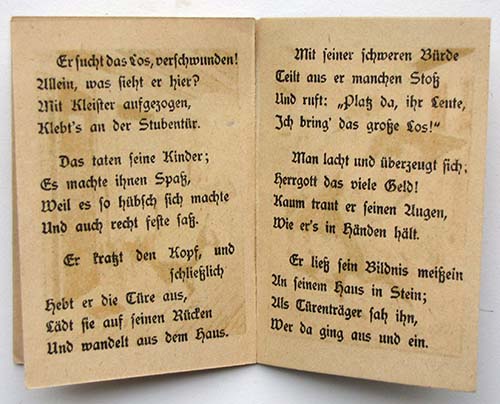 Er sucht das Los, verschwunden!
Allein, was sieht er hier?
Mit Kleister aufgezogen,
Klebt's an der Stubentür.
Das taten seine Kinder;
Es machte ihnen Spaß,
Weil es so hübsch sich machte
Und auch recht feste saß.
Er kratzt den Kopf, und
schließlich
Hebt er die Türe aus,
Lädt sie auf seinen Rücken
Und wandelt aus dem Haus.
Mit seiner schweren Bürde
Teilt aus er manchen Stoß
Und ruft: „Platz da, ihr Leute,
Ich bring' das große Los!"
Man lacht und überzeugt sich;
Herrgott das viele Geld!
Kaum traut er seinen Augen,
Wie er's in Händen hält.
Er ließ sein Bildnis meißeln
An seinem Haus in Stein;
Als Türenträger sah ihn,
Wer da ging aus und ein.